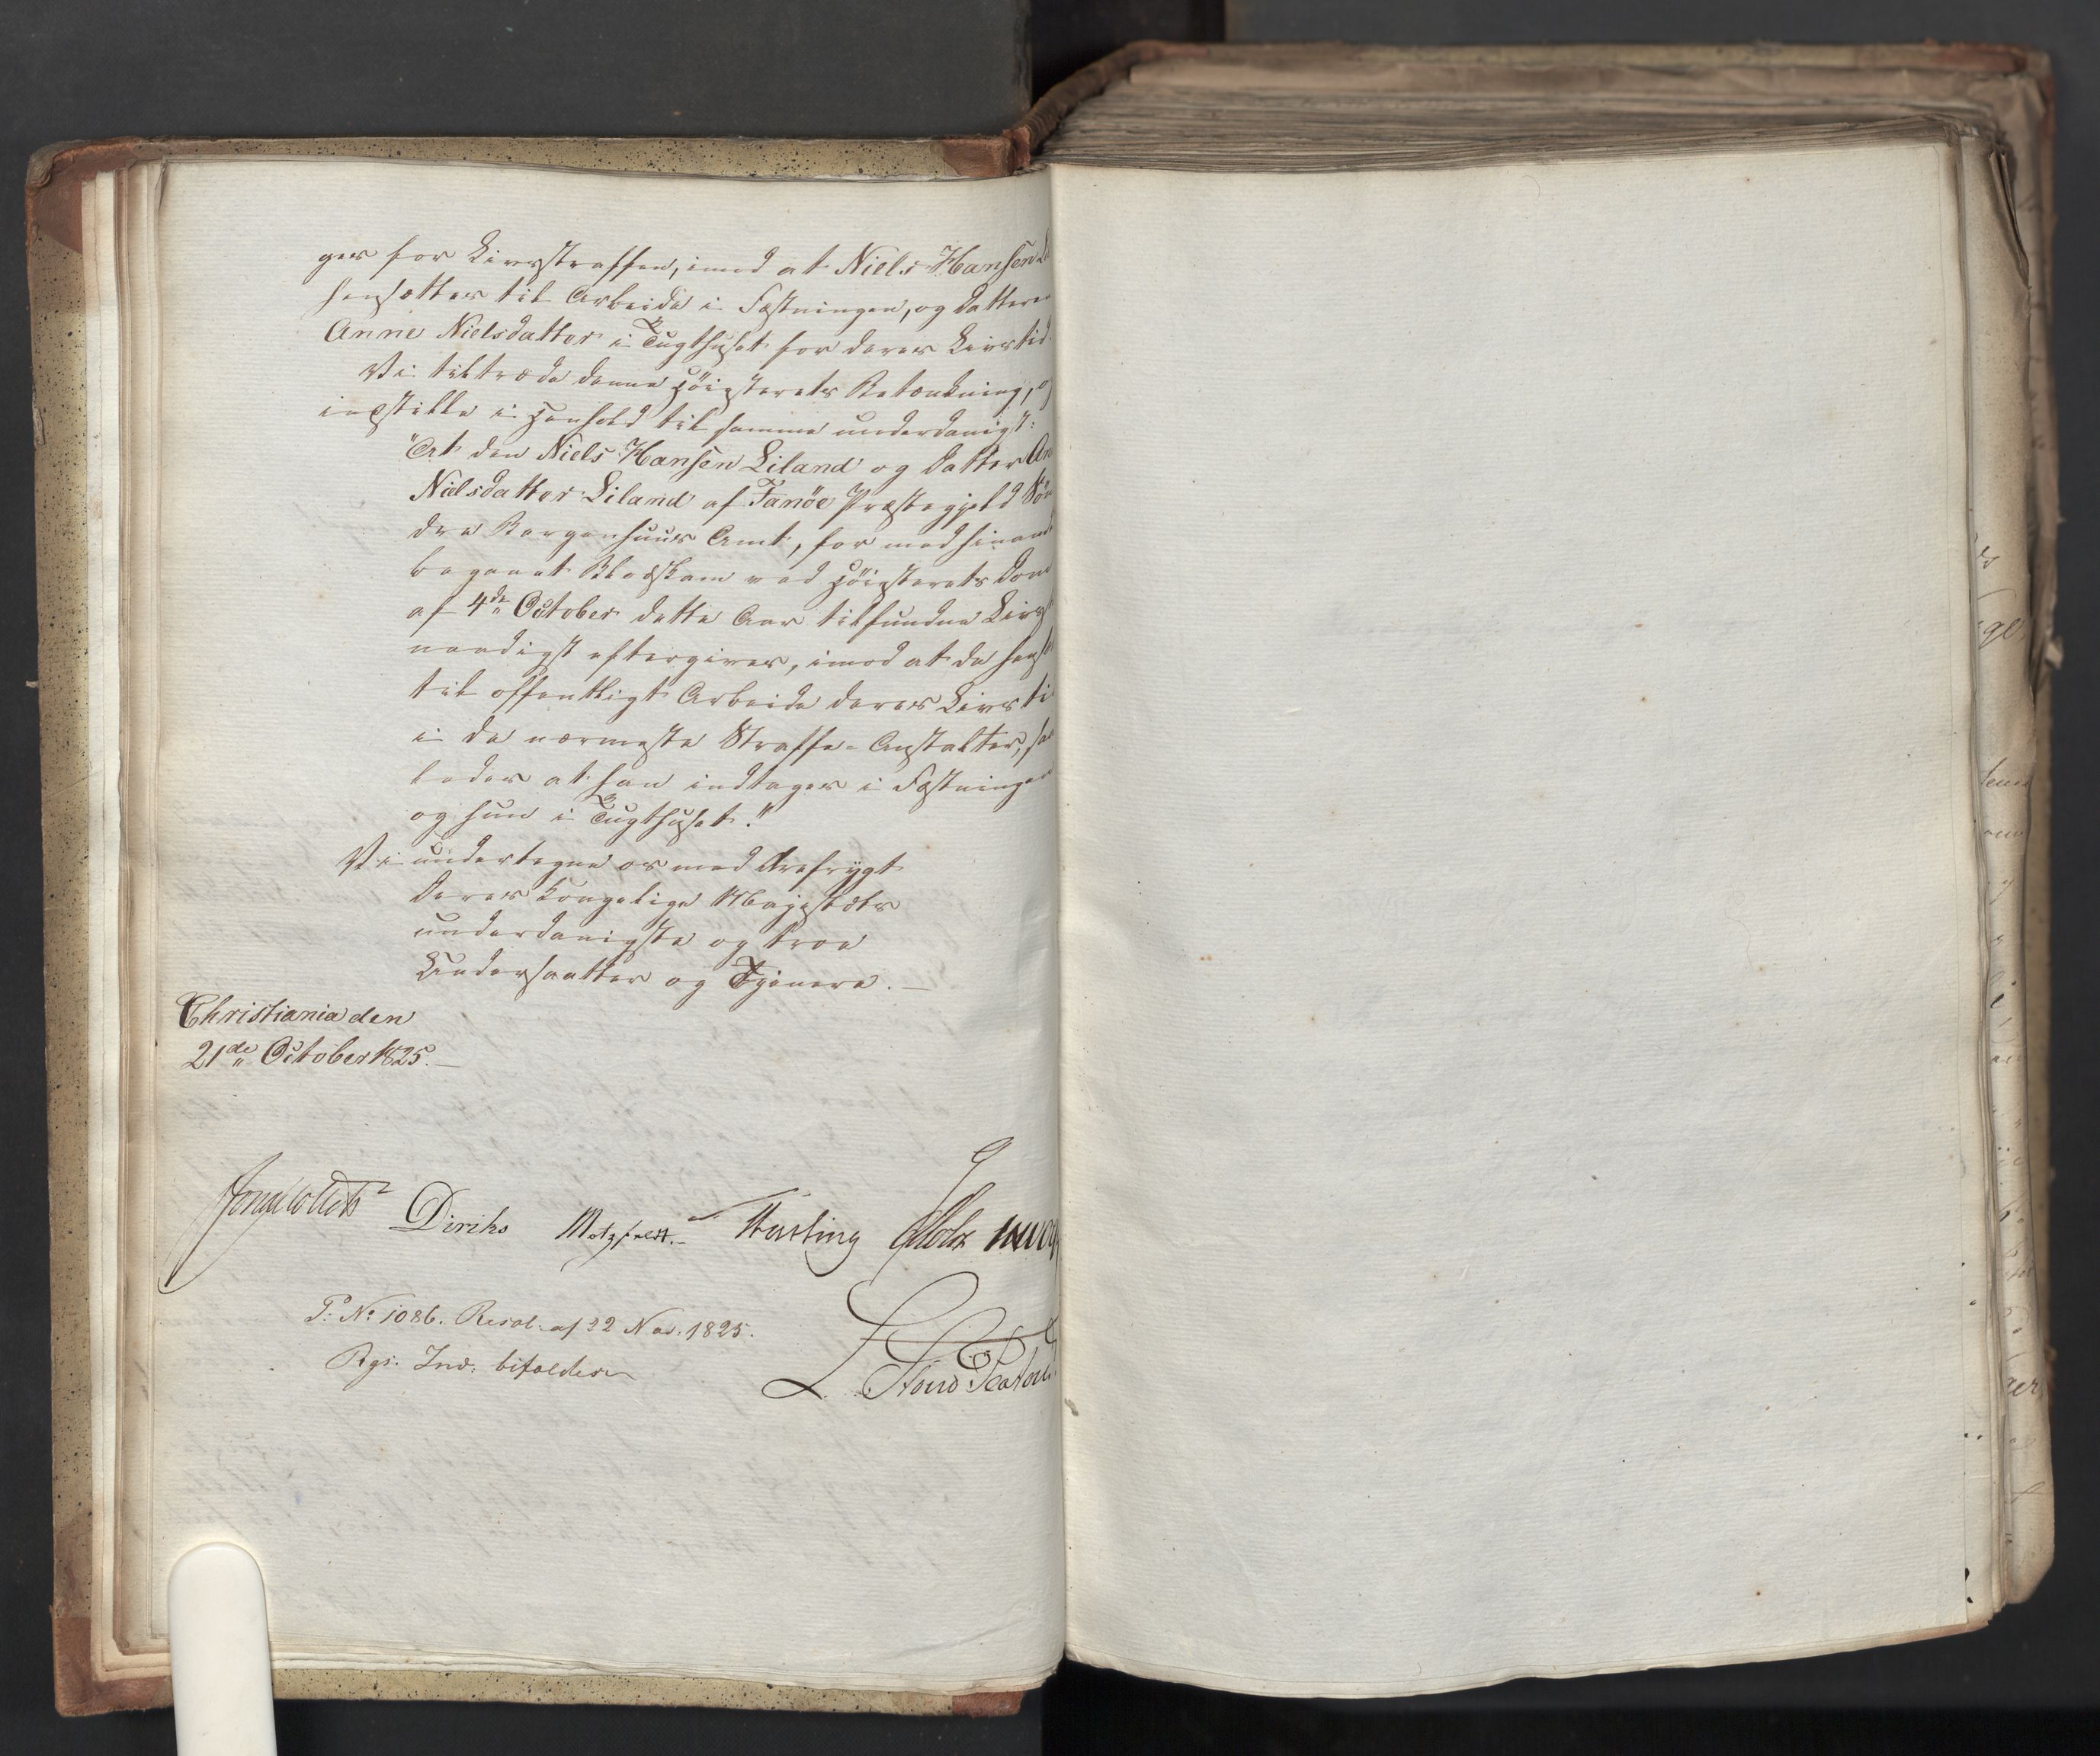 ges for Livsstraffen, imod at Niels Hansen
hensættes til Arbeide i Fæstningen, og Datteren
Anne Nielsdatter i Tugthuset for deres Livstid.
Vi tiltræde denne Høiesterets Betænkning, og
indstille i Henhold til samme underdanigst:
"At den Niels Hansen Liland og Datter
Nielsdatter Liland af Fanöe Præstegjeld Sön
dre Bergenhuus Amt, for med hinand
begaaet Blodskam ved Høiesterets Dom
af 4de October dette Aar tilfundne Livs
naadigst eftergives, imod at de hen
til offentligt Arbeide deres Livsti
i de nærmeste Straffe-Anstalter, saa
ledes at han indtages i Fæstningen
og hun i Tugthuset."
Vi undertegne os med Ærefrygt
Deres Kongelige Majestæts
underdanigste og troe
Undersaatter og Tjenere.—
Christiania den
21de October 1825.—
Jonas Collett Diriks Motzfeldt. Fasting
P: No 1086. Resol. af 22 Nov. 1825.
Rgs. Ind: bifaldes